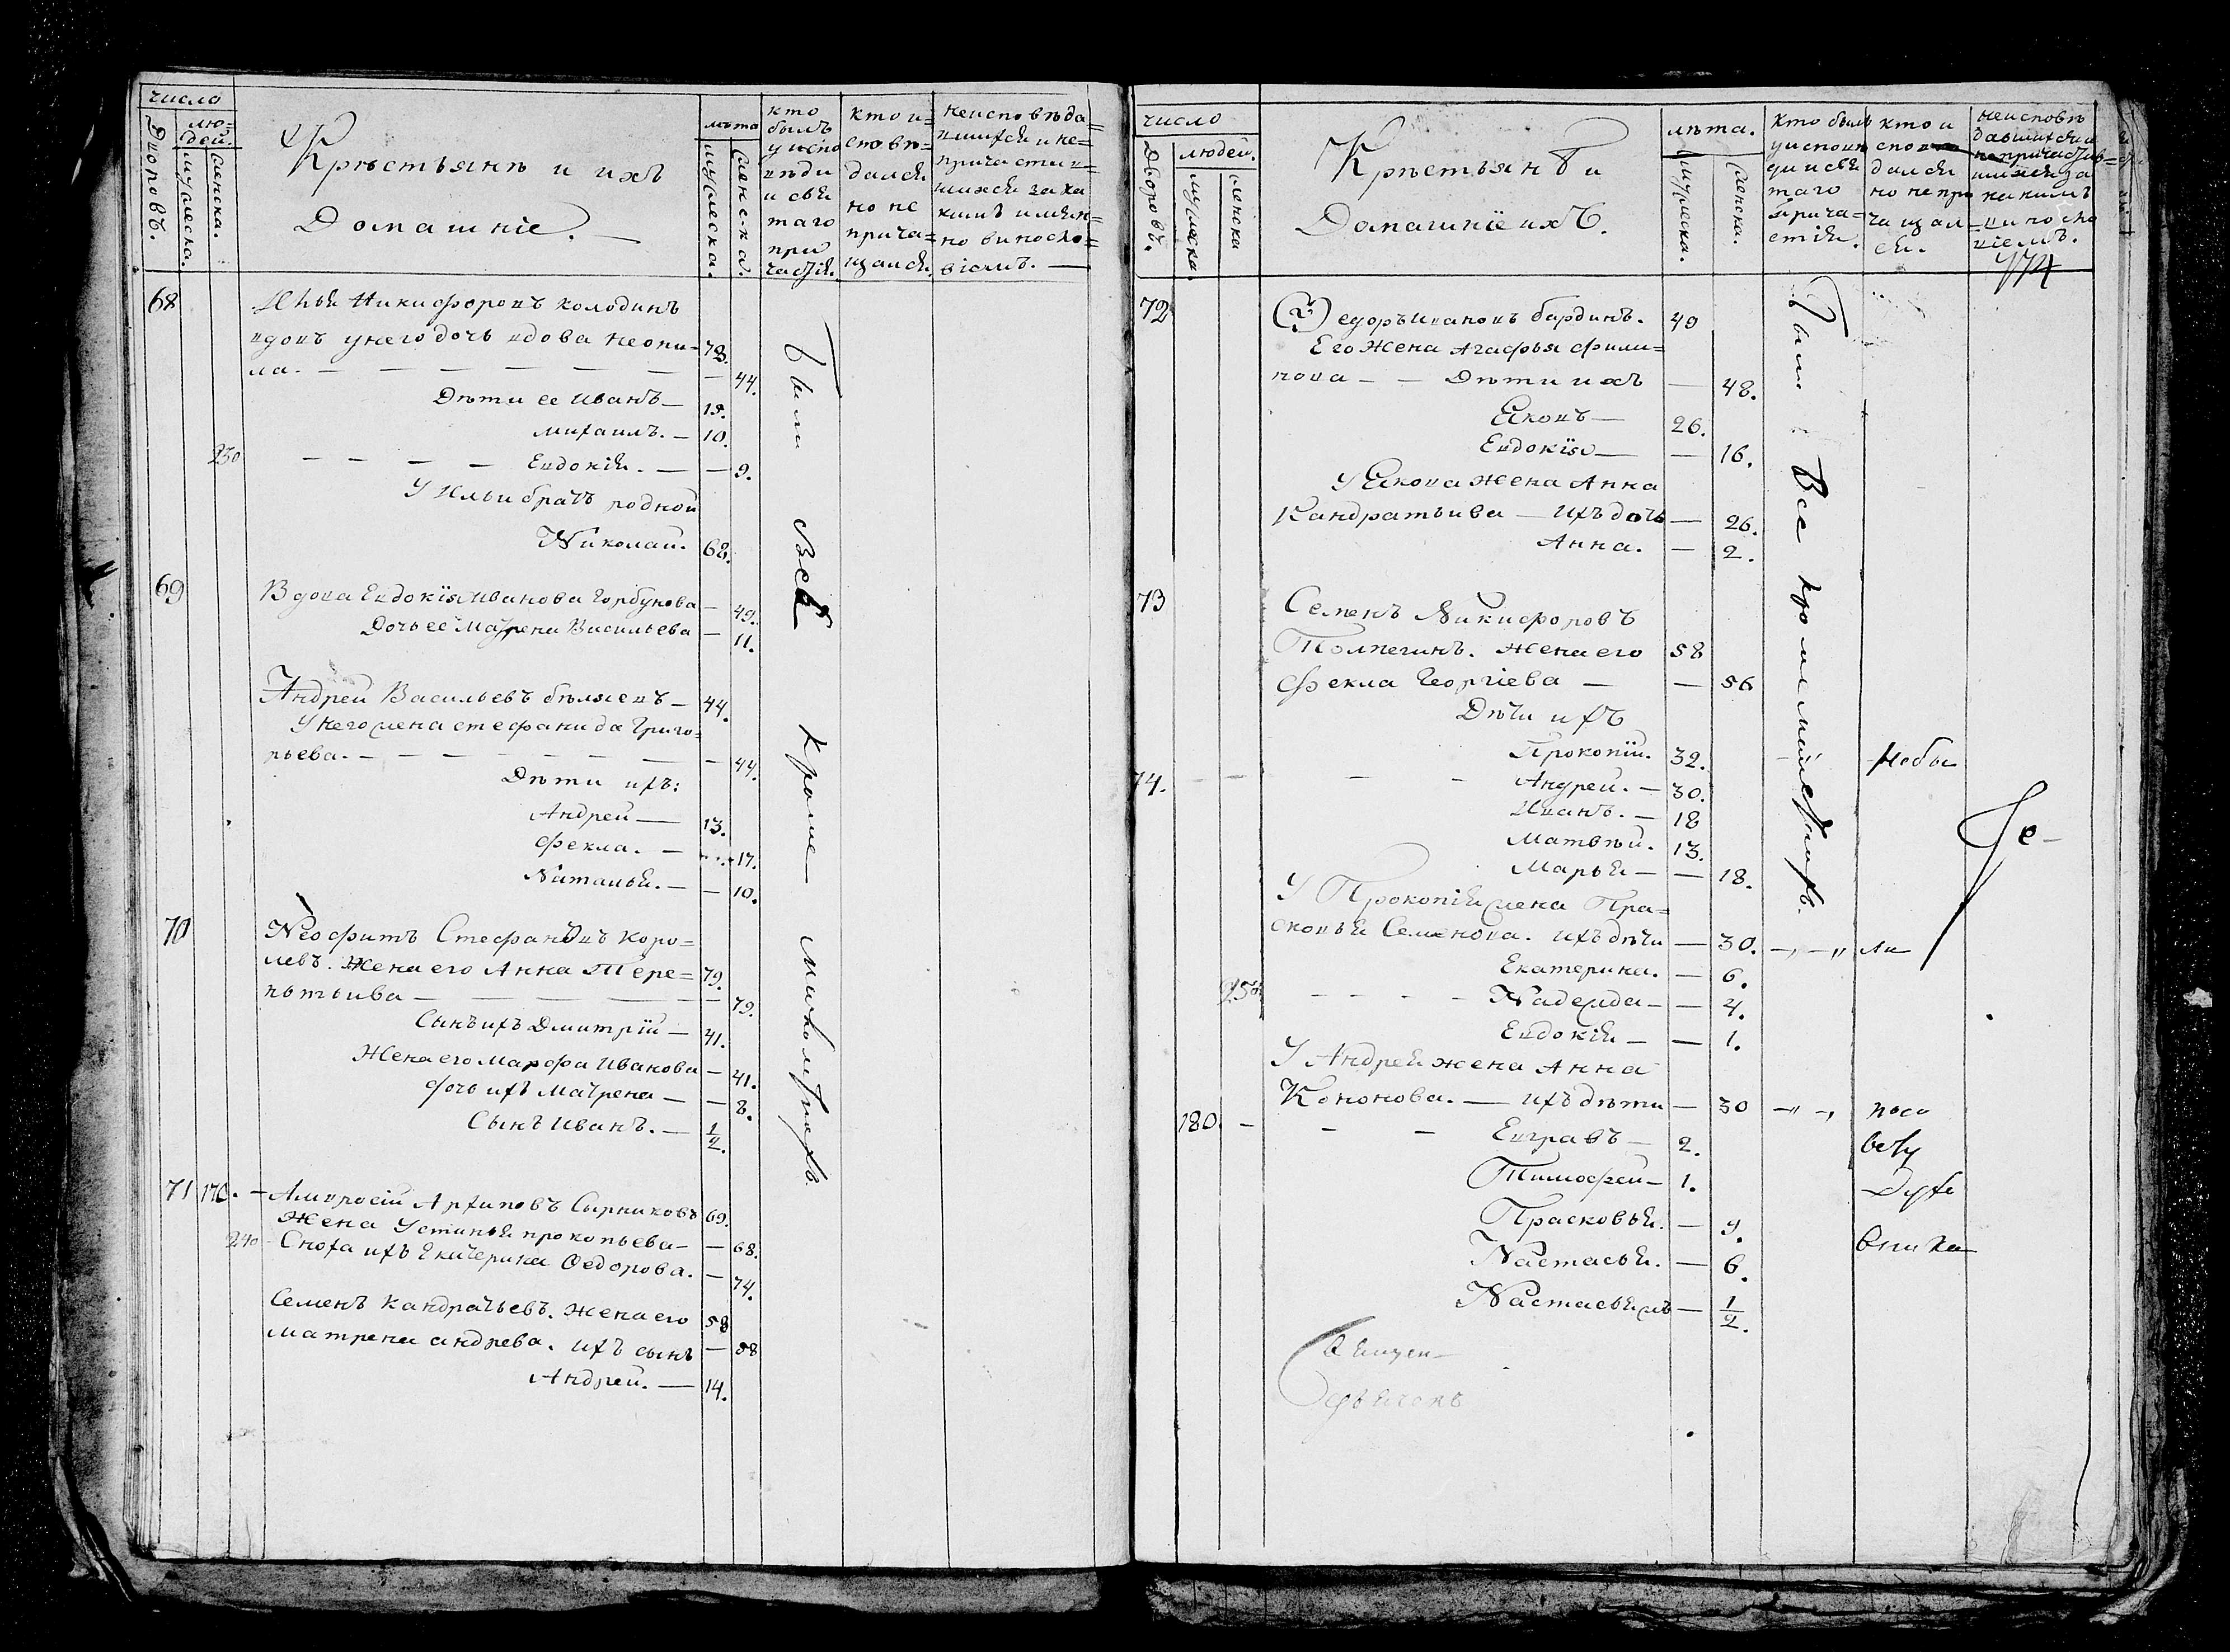 число
Дворовъ.
лю=
дей.
мужеска.
женска.
Крѣстьянѣ и ихъ
Домашніе. —
лѣта
мужеска.
женска.
кто
былъ
у испо
вѣди
и свя
таго
при
частія.
кто и=
сповѣ=
дался
но не
прича=
щался.
неисповѣда
вшихся и не=
причастив=
шихся за ка
кимъ имян=
но винословіемъ. —
68
Илья Никифоровъ Колодинъ
вдовъ у него дочь вдова Неони= 78.
ла. — — — — — — — 44.
Дѣти ее Иванъ — 19.
Михаилъ. — 10.
230 — — — — Евдокія. — — 9.
У Ильи братъ родной
Николай. 68.
69
Вдова Евдокія Иванова Горбунова — 49.
Дочь ее Матрена Васильева — 11.
Андрей Васильевъ бѣляевъ — 44.
У него жена Стефанида Григо=
рьева. — — — — — — — 44.
Дѣти ихъ:
Андрей — 13.
Фекла. — 17.
Наталья. — — 10.
70
Неофитъ Стефановъ Коро=
левъ. Жена его Анна Тере= 79.
нтьива — — — — — — 79.
Сынъ ихъ Дмитрій — 41.
Жена его Марфа Иванова — 41.
дочь ихъ Матрена — — 8.
Сынъ Иванъ. — 1/2.
71 170. — Амвросій Архиповъ Сырниковъ 69.
Жена Устинья Прокопьева — — 68.
240 — Сноха ихъ Екатерина Федорова. — 74.
Семенъ Кандратьевъ. Жена его 58
Матрена Андрева. ихъ сынъ — 58
Андрей. — 14.
Были всѣ кроме малолѣтнихъ.
число
Дворовъ.
людей.
мужеска.
женска
Крѣстьянѣ и
Домашніе ихъ.
лѣта.
мужеска.
женска.
кто былъ
у исповѣ
ди и свя
таго
прича=
стія.
кто и
спов
дался
но не при
чащал
ся.
неисповѣ
давшихся и
непричастив=
шихся за
какимъ
винос​ло
віемъ.
72
Ѳедоръ Ивановъ бардинъ. 49
Его Жена Агафья Фили=
пова — — Дѣти ихъ — 48.
Яковъ — 26.
Евдокія — — 16.
У Якова Жена Анна
Кандратьива — Ихъ дочь — 26.
Анна. — 2.
73
Семенъ Никифоровъ
Толпегинъ. Жена его 58
Фекла Георгіева — — 56
Дѣти ихъ
Прокопій. 32. Небы
74. — — — — Андрей. — 30.
Иванъ. — 18
Матвѣй. 13.
Марья — — 18.
У Прокопія жена Пра=
сковья Семенова. ихъ дѣти — 30. —„—„ ли
Екатерина. — 6.
— — — — Надежда — — 4.
Евдокія — — 1.
У Андрея жена Анна
Кононова. — ихъ дѣти — 30 —„ —„
180. — — — Евгравъ — 2.
Тимофей — 1.
Прасковья. — 9.
Настасья. — 6.
Настасья жъ — 1/2.
Были Все кроме малолетнихъ.